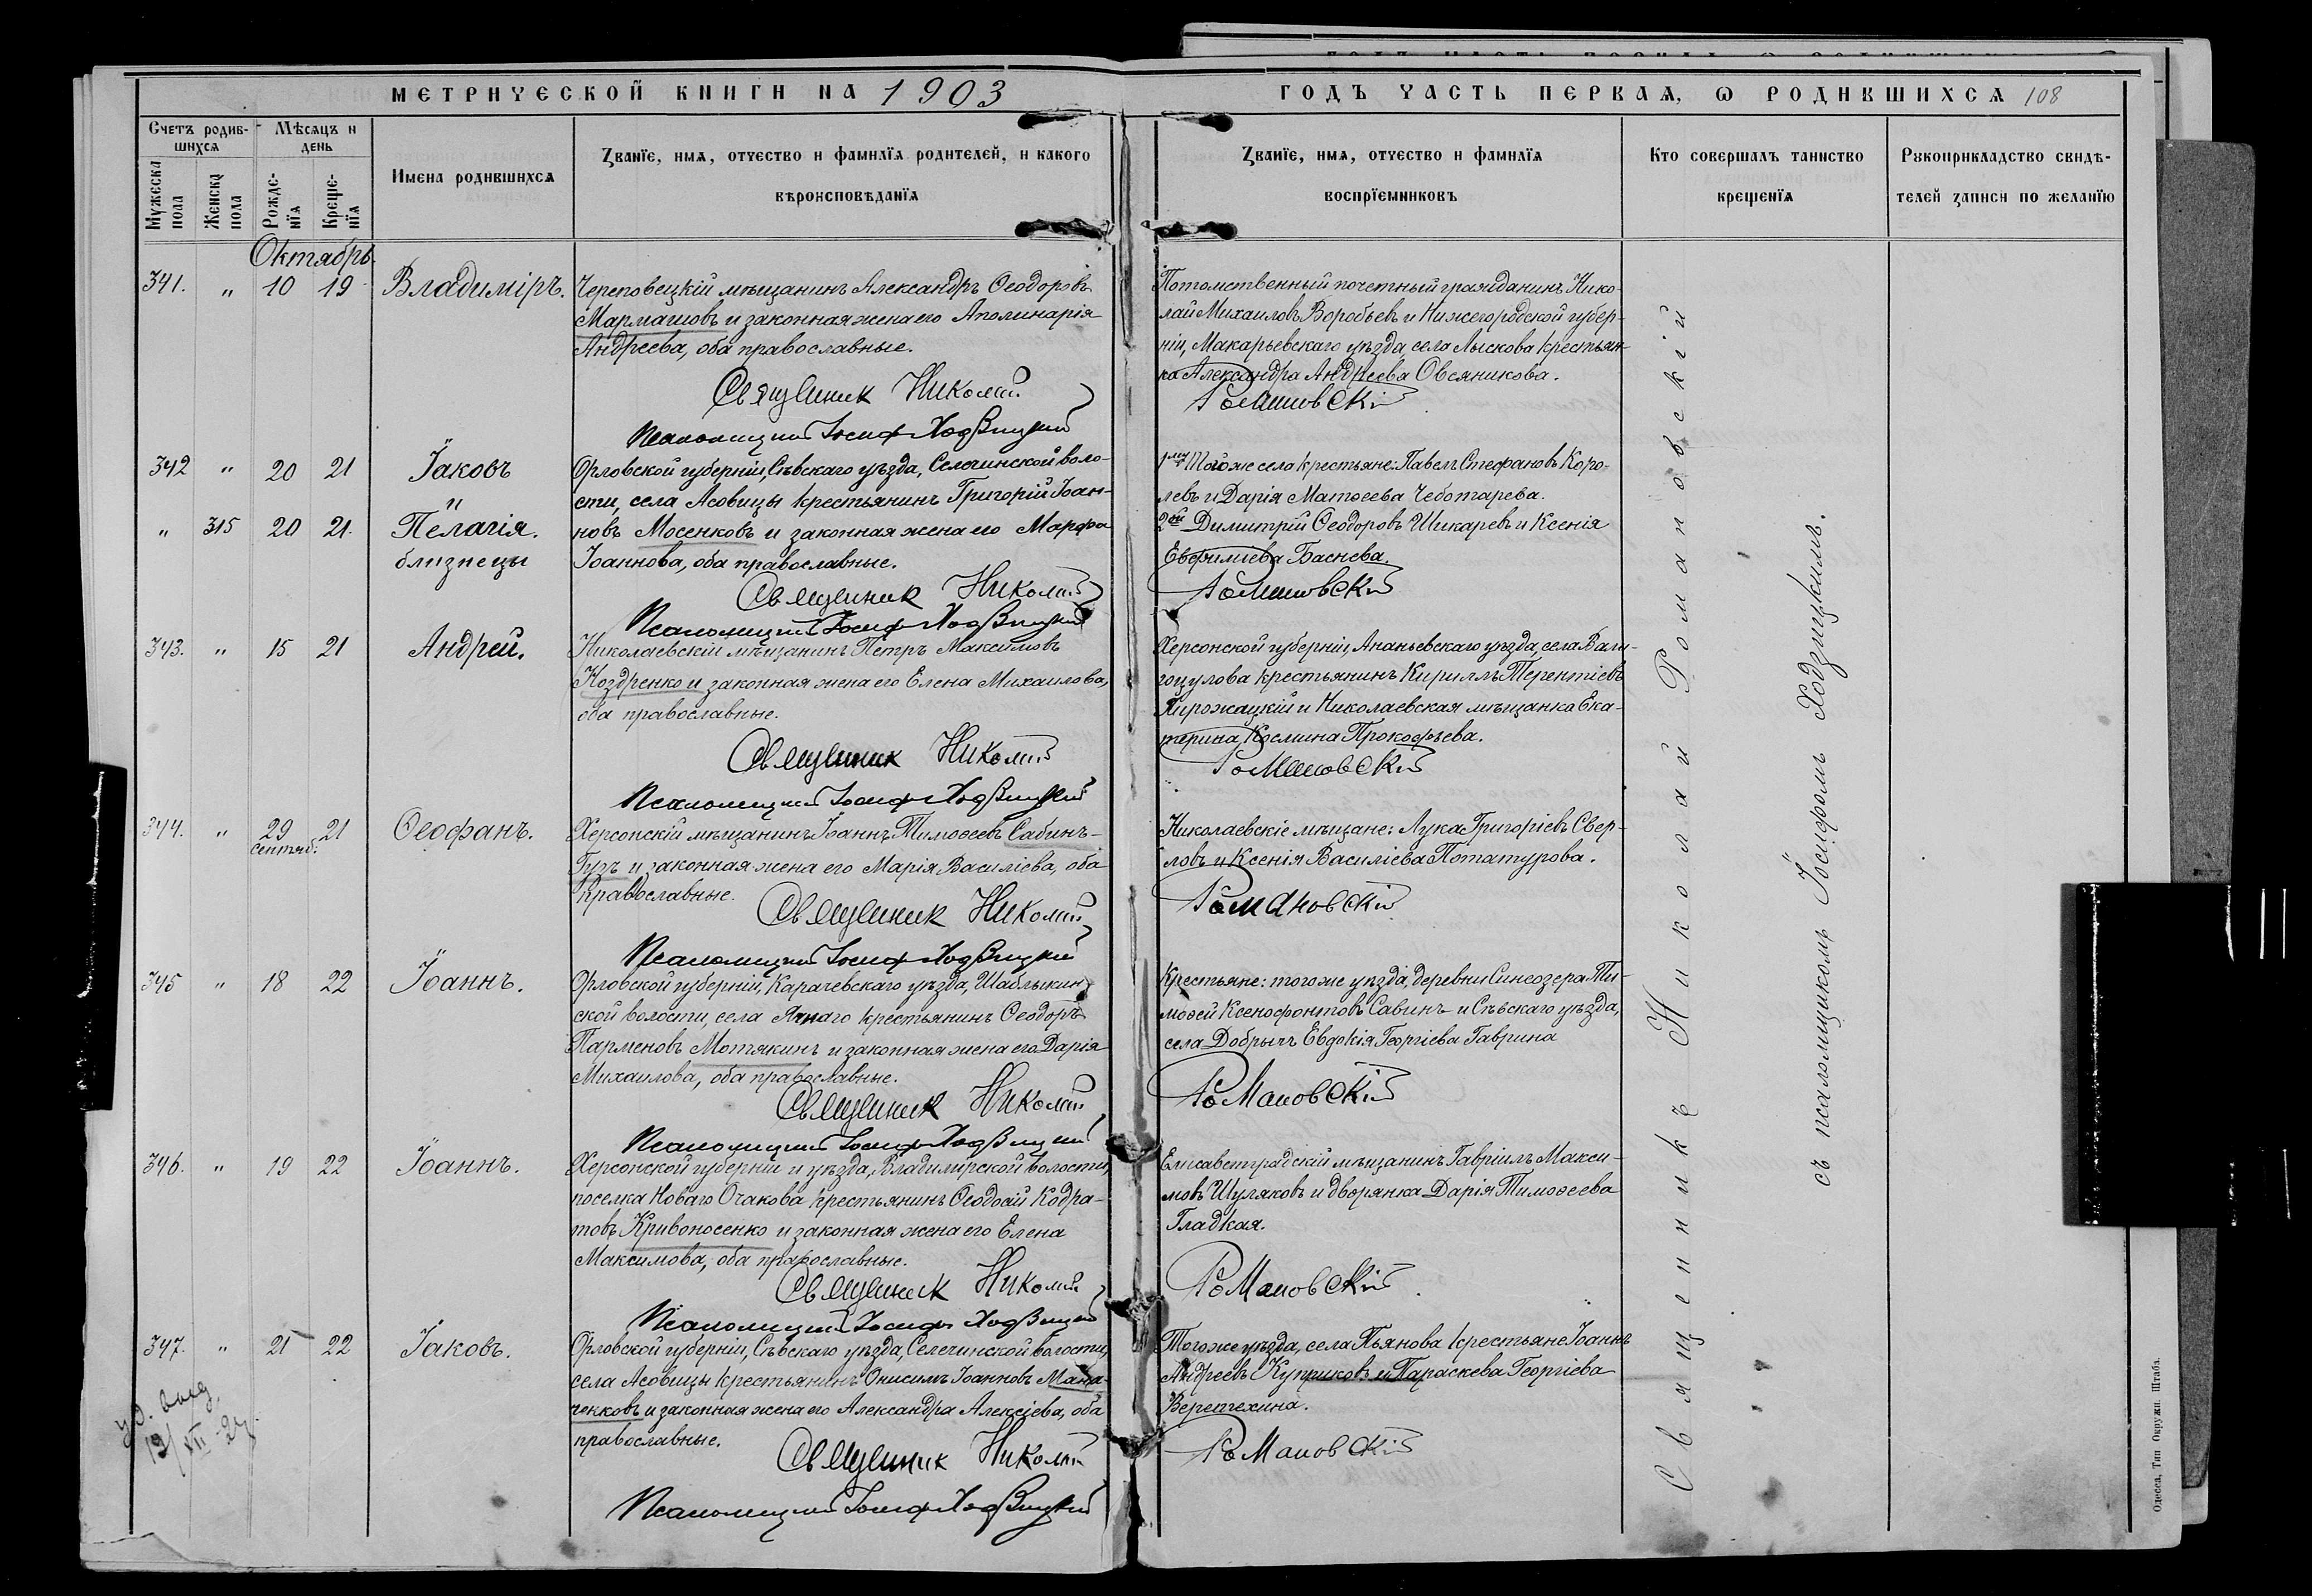 МЕТРИЧЕСКОЙ КНИГИ НА 1903
ГОДЪ ЧАСТЬ ПЕРВАЯ, Ѡ РОДИВШИХСЯ 108
Счетъ родив-
шихся
Мѣсяцъ и
день
Мужеска
пола
Женска
пола
Рожде-
нїя
Креще-
нїя
Имена родившихся
Званїе, имя, отчество и фамилїя родителей, и какого
вѣроисповѣданїя
Званїе, имя, отчество и фамилїя
воспрїемниковъ
Кто совершалъ таинство
крещенїя
Рукоприкладство свидѣ-
телей записи по желанїю
Октябрь.
341. " 10 19 Владиміръ.
Череповецкій мѣщанинъ Александръ Ѳеодоровъ
Мармашовъ и законная жена его Аполинарія
Андреева, оба православные.
Священник Николай
Псаломщикъ Іосиф Ходзицкий
Потомственный почетный гражданинъ Нико-
лай Михаиловъ Воробьевъ и Нижегородской губер-
ніи, Макарьевскаго уѣзда, села Лыскова крестьян-
ка Александра Андреева Овсяникова.
Романовскій
342 " 20 21 Іаковъ
и
" 315 20 21. Пелагія.
близнецы
Орловской губерніи, Сѣвскаго уѣзда, Селечинской воло-
сти, села Асовицы крестьянинъ Григорій Іоан-
новъ Мосенковъ и законная жена его Марѳа
Іоаннова, оба православные.
Священник Николай
Псаломщикъ Іосиф Ходзицкий
1го Того же села крестьяне: Павелъ Стефановъ Коро-
левъ и Дарія Матѳеева Чеботарева.
2ой Димитрій Ѳеодоровъ Шикаревъ и Ксенія
Евфиміева Баснева.
Романовскій
343. " 15 21 Андрей.
Николаевскій мѣщанинъ Петръ Максимовъ
Ноздренко и законная жена его Елена Михаилова,
оба православные.
Священник Николай
Псаломщикъ Іосиф Ходзицкий
Херсонской губерніи, Ананьевскаго уѣзда, села Вали-
гоцулова крестьянинъ Кириллъ Терентіевъ
Пирожацкій и Николаевская мѣщанка Ека-
терина Космина Прокофьева.
Романовскій
344. " 29 21 Ѳеофанъ.
сентяб.
Херсонскій мѣщанинъ Іоаннъ Тимоѳеевъ Сабинъ-
Гуръ и законная жена его Марія Василіева, оба
православные.
Священник Николай
Псаломщикъ Іосиф Ходзицкий
Николаевскіе мѣщане: Лука Григоріевъ Свер-
ловъ и Ксенія Василіева Потатурова.
Романовскій
345 " 18 22 Іоаннъ.
Орловской губерніи, Карачевскаго уѣзда, Шаблыкин-
ской волости, села Ячнаго крестьянинъ Ѳеодоръ
Парменовъ Мотякинъ и законная жена его Дарія
Михаилова, оба православные.
Священник Николай
Псаломщикъ Іосиф Ходзицкий
Крестьяне: того же уѣзда, деревни Синеозера Ти-
моѳей Ксенофонтовъ Савинъ и Сѣвскаго уѣзда,
села Добрычъ Евдокія Георгіева Гаврина
Романовскій
346. " 19 22 Іоаннъ.
Херсонской губерніи и уѣзда, Владимирской волости,
поселка Новаго Очакова крестьянинъ Ѳеодосій Кодра-
товъ Кривоносенко и законная жена его Елена
Максимова, оба православные.
Священник Николай
Псаломщикъ Іосиф Ходзицкий
Елисаветградскій мѣщанинъ Гавріилъ Макси-
мовъ Шуляковъ и дворянка Дарія Тимоѳеева
Гладкая.
Романовскій
347. " 21 22 Іаковъ.
Орловской губерніи, Сѣвскаго уѣзда, Селечинской волости,
села Асовицы крестьянинъ Онисимъ Іоанновъ Мана-
ченковъ и законная жена его Александра Алексіева, оба
православные.
Священник Николай
Псаломщикъ Іосиф Ходзицкий
Того же уѣзда, села Пьянова крестьяне Іоаннъ
Андреевъ Куприковъ и Параскева Георгіева
Веретехина.
Романовскій
Священникъ Николай Романовскій
съ псаломщикомъ Іосифомъ Ходзицкимъ.
19/XII-24
Одесса, Тип. Окружн. Штаба.